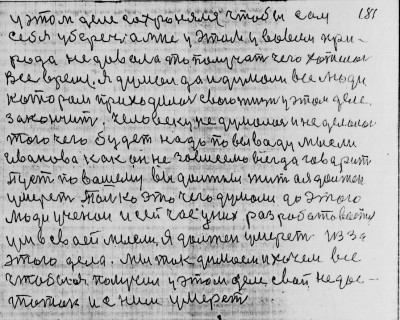 у этом деле сохроняля чтобы сам 181
себя уберечь а мне у этом у вовси при-
рода не довала это получать чего хотелося
все время. Я думою да и думоли все люди
котором приходилося свою жизнь у этом деле
закончить. Человек не думолося и не делолося
того чего будет надо по выводу мысли
Иванова как он не зовисемо всегда говорить
пусть по вашему вы должны жить а я должен
умереть. Только это чего думоли до этого
люди ученои и сей час у них розработовоется
ум в своей мысли, я должен умереть из за
этого дела. мы так думоем и хочем все
чтобы я получил у этом деле свой недос-
таток и с ним умереть